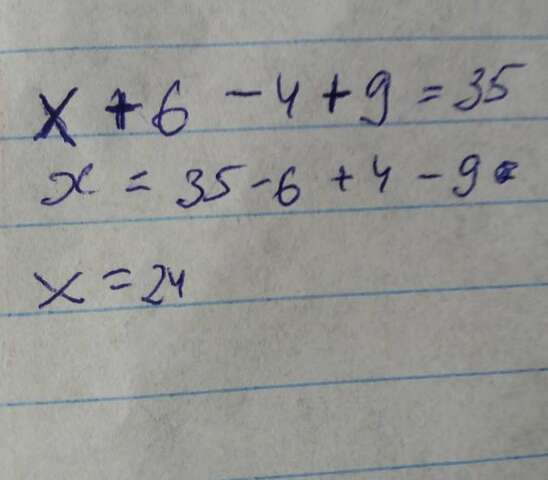 x + 6 - 4 + 9 = 35
x = 35 - 6 + 4 - 9
x = 24